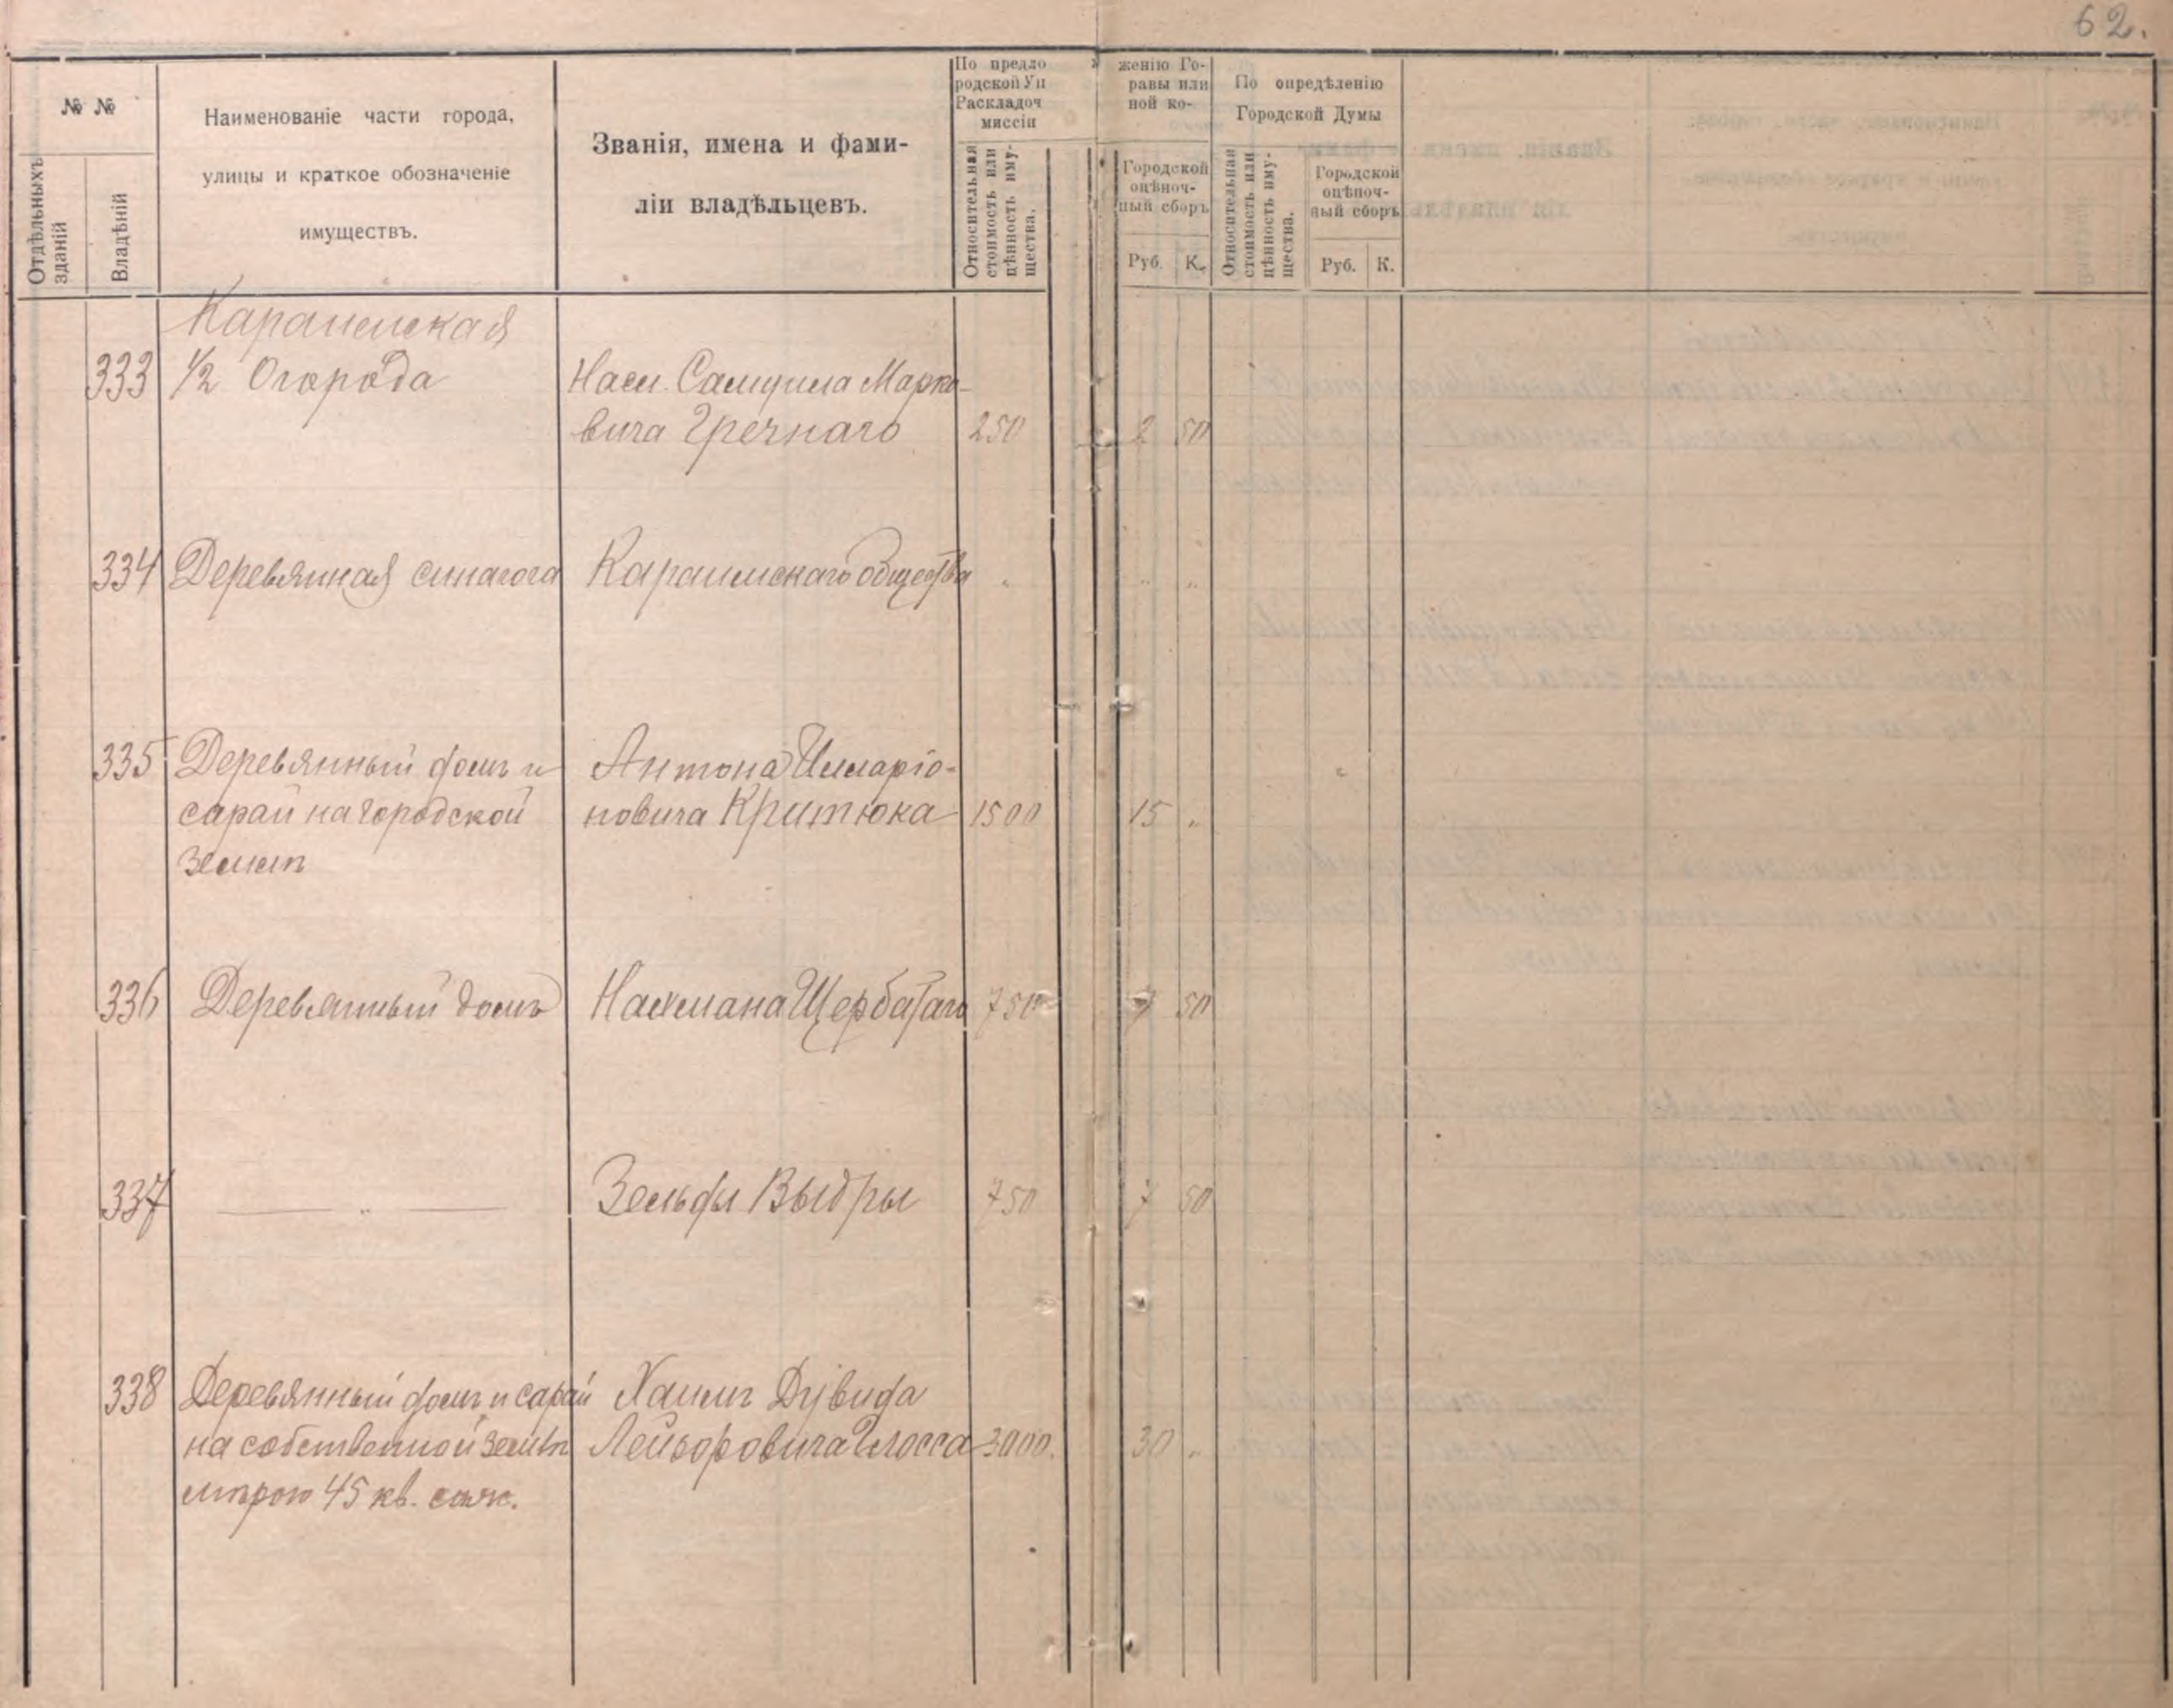 62.
№ №
Отдѣльныхъ зданій
Владѣній
Наименованіе части города,
улицы и краткое обозначеніе
имуществъ.
Званія, имена и фами-
ліи владѣльцевъ.
По предло
родской Уп
Раскладоч
миссіи
женію Го-
равы или
ной ко-
Относительная
стоимость или
цѣнность иму-
щества.
Городской
оцѣноч-
ный сборъ
Руб. К.
По опредѣленію
Городской Думы
Относительная
стоимость или
цѣнность иму-
щества.
Городской
оцѣноч-
ный сборъ
Руб. К.
Караимская
333 1/2 Огорода Насл. Самуила Марко-
вича Гречнаго 250 2 50
334 Деревянная синагога Караимскаго общества „ „ „
335 Деревянный домъ и Антона Иларіо-
сарай на городской новича Критюка 1500 15 „
землѣ
336 Деревянный домъ Нахмана Щербатаго 750 7 50
337 — „ — Зельды Выдры 750 7 50
338 Деревянный домъ и сарай Хаимъ Дувида
на собственной землѣ Лейзоровича Глосса 3000. 30 „
мѣрою 45 кв. саж.